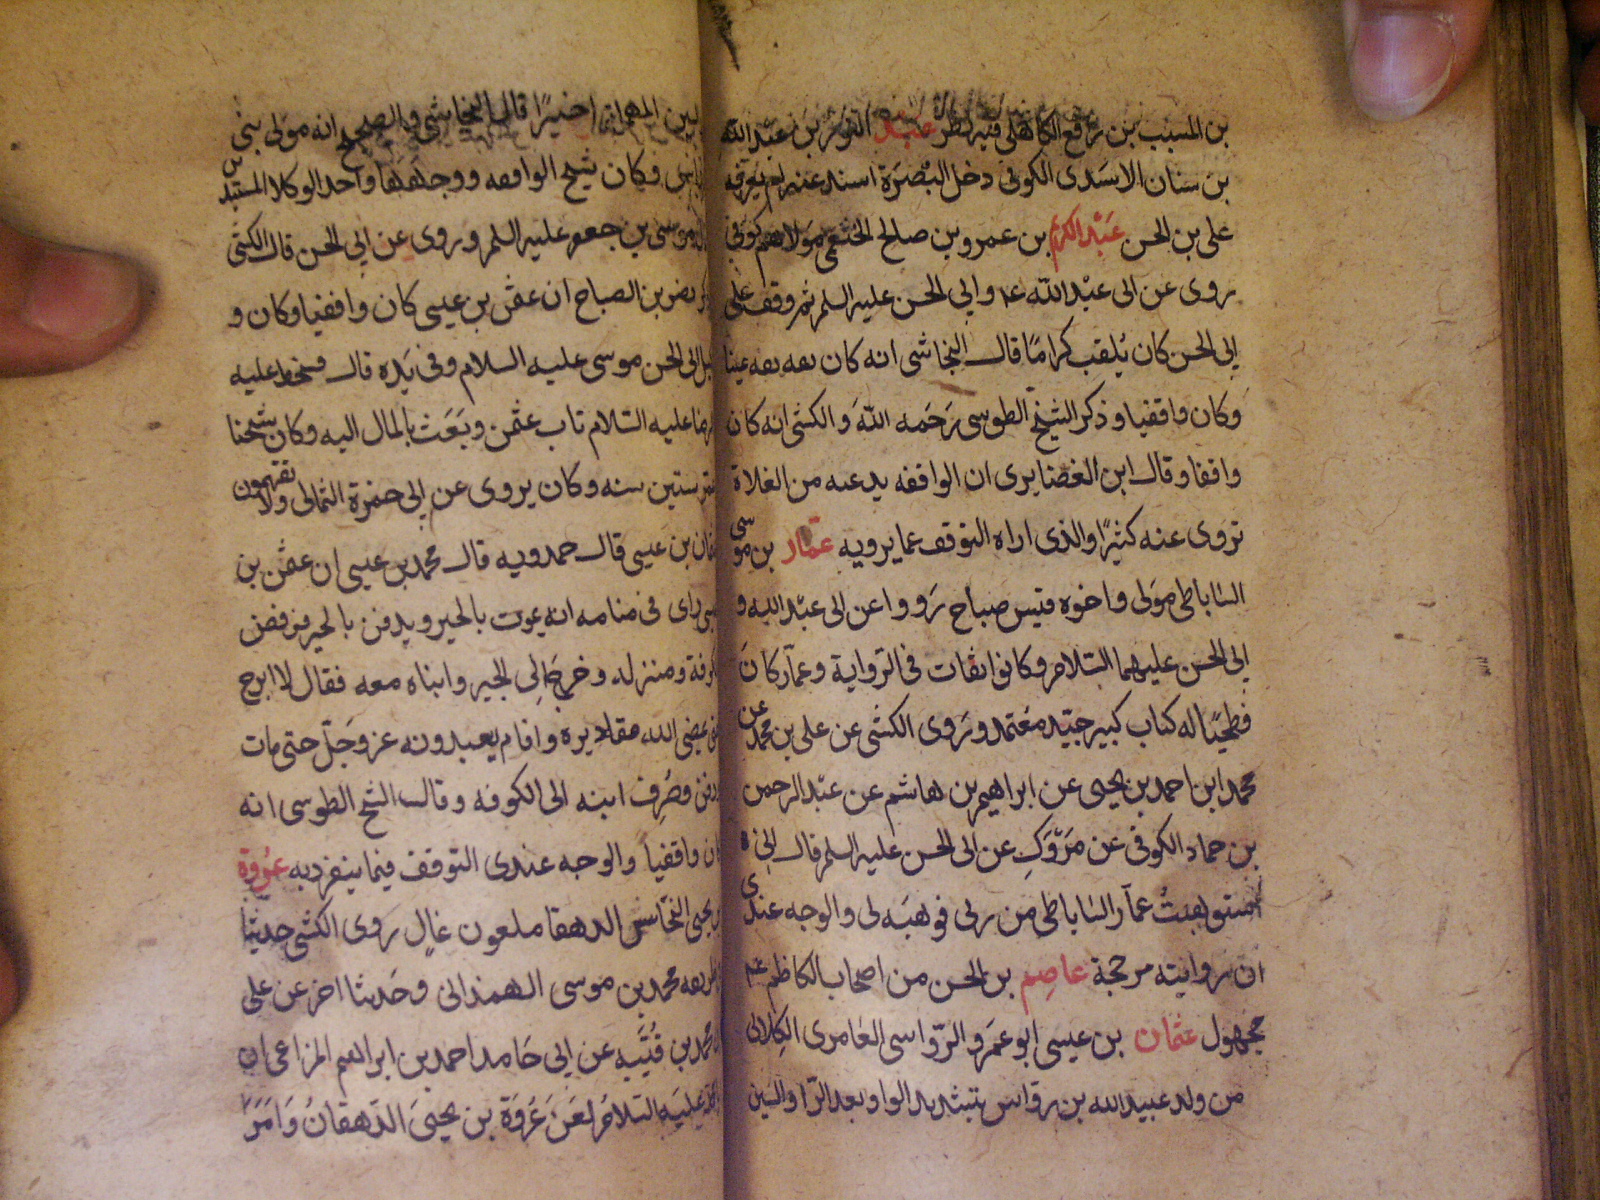 بن المسيب بن رافع الكاهلى فيه نظر عبد المؤمن بن عبد الله
بن سنان الاسدى الكوفى دخل البصرة اسند عنه لم يعرفه
على بن الحسن عبد الكريم بن عمرو بن صالح الخثعمى مولاهم كوفى
روى عن ابى عبد الله ع وابى الحسن عليه السلم ثم وقف على
ابى الحسن كان يلقب كراما قال النجاشى انه كان ثقه ثقه عينا
وكان واقفيا وذكر الشيخ الطوسى رحمه الله والكشى انه كان
واقفا وقال ابن الغضايرى ان الواقفه يدعيه من الغلاة
تروى عنه كثيرًا والذى اراه التوقف عما يرويه عمار بن موسى
الساباطى مولى واخوه قيس صباح رووا عن ابى عبد الله و
ابى الحسن عليهما السلام وكانوا ثقات فى الرواية وعمار كان
فطحيا له كتاب كبير جيد معتمد وروى الكشى عن على بن محمد عن
محمد ابن احمد بن يحيى عن ابراهيم بن هاشم عن عبد الرحمن
بن حماد الكوفى عن مروك عن ابى الحسن عليه السلم قال انى
استوهبت عمار الساباطى من ربى فوهبه لى والوجه عندى
ان روايته مرجحة عاصم بن الحسن من اصحاب الكاظم ع
مجهول عثمان بن عيسى ابو عمرو الرواسى العامرى الكلابى
من ولد عبيد الله بن رواس بتشديد الواو بعد الرا والسين
المهملة اخيرًا قال النجاشى والصحيح انه مولى بنى
وكان شيخ الواقفه ووجهها واحد الوكلا المستبدين
موسى بن جعفر عليه السلم وروى عن ابى الحسن قال الكشى
نصر بن الصباح ان عثمن بن عيسى كان واقفيا وكان و
ابى الحسن موسى عليه السلام وفى يده قال فسخط عليه
الرضا عليه السلام تاب عثمن وبعث بالمال اليه وكان شيخا
ستين سنه وكان يروى عن ابى حمزة الثمالى ولا يتهمون
عثمان بن عيسى قال حمدويه قال محمد بن عيسى ان عثمن بن
عيسى راى فى منامه انه يموت بالحير ويدفن بالحير فرفض
الكوفة ومنزله وخرج الى الحير وابناه معه فقال لا ابرح
حتى يمضى الله مقاديره واقام يعبد ربه عز وجل حتى مات
ودفن وصرف ابنه الى الكوفه وقال الشيخ الطوسى انه
كان واقفيا والوجه عندى التوقف فيما ينفرد به عروة
بن يحيى النخاس الدهقا ملعون غالٍ روى الكشى حديثا
محمد بن موسى الهمدانى وحديثا اخر عن على
بن محمد بن قتيبه عن ابى حامد احمد بن ابراهيم المراغى ان
عليه السلام لعن عروة بن يحيى الدهقان وامر